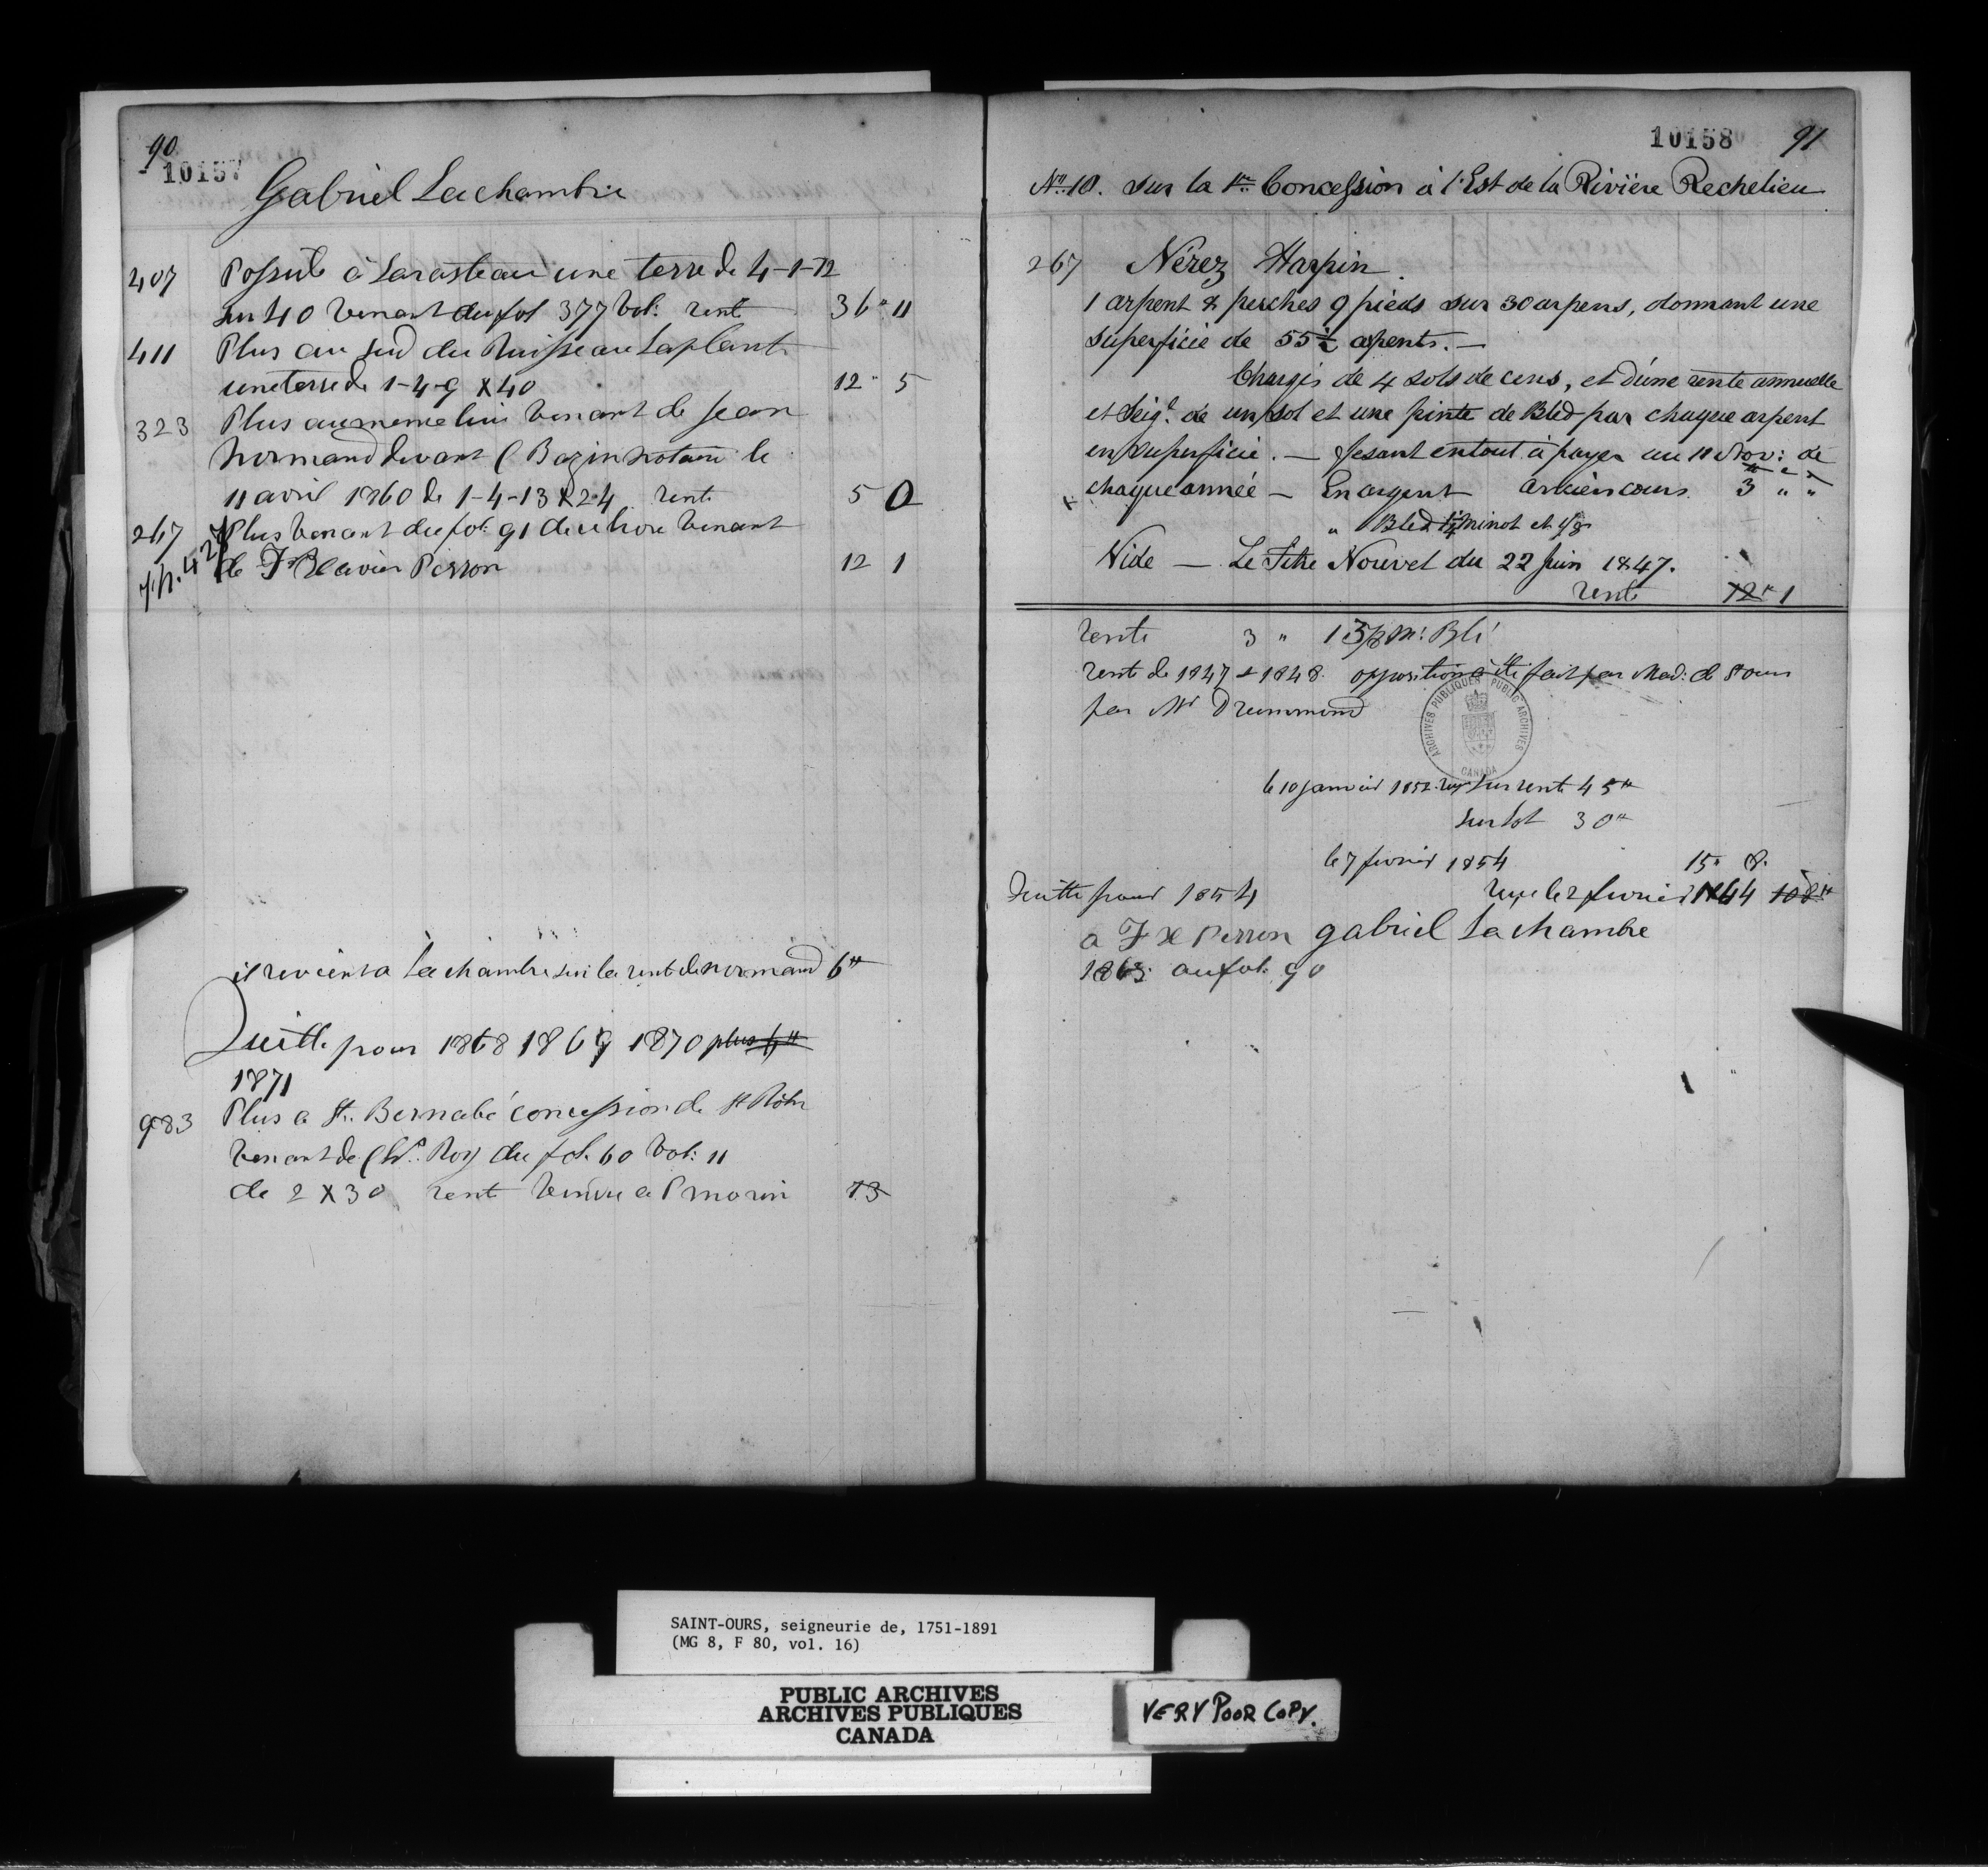 90
10157
Gabriel Lachambre
407 Possede à Larasteau une terre de 4-1-12
sur 40 venant du fol 377 vol: rente 36" 11
411 Plus au sud du Ruisseau Laplante
une terre de 1-4-9 X 40 12" 5
323 Plus au meme lieu venant de Jean
Normand devant C Bazin notaire le
11 avril 1860 de 1-4-13 X 24 rente 5 0
267 Plus venant du fol. 91 de ce livre venant
de F Xavier Perron 12 1
il revient a Lachambre sur la rente de normand 6#
Quitte pour 1868 1869 1870 plus 6#
1871
983 Plus a St. Bernabé concession de St
venant de Roy du fol. 60 Vol: 11
de 2 X 30 rente vendue a P morin 13
10158 91
No. 10. sur la 1re Concession à l'Est de la Rivière Rechelieu
267 Nérez Harpin.
1 arpent 8 perches 9 pieds sur 30 arpens, donnant une
superficie de 55 1/2 arpents. —
Chargés de 4 sols de cens, et d'une rente annuelle
et Seigl. de un sol et une pinte de Bled par chaque arpent
en superficie. — fesant en tout à payer au 11 Nov: de
chaque année — En argent ancien cours. 3 " "
" Bled minot et
Vide — Le Titre Nouvel du 22 Juin 1847.
rente 12" 1
rente 3 " 1 5/8 M: Blé
rente de 1847 & 1848. opposition a été fait par Mad: de St ours
par Mr Drummond
ARCHIVES PUBLIQUES PUBLIC ARCHIVES
CANADA
le 10 janvier 1852 reçu sur rente 45#
sur lot 30#
le 7 fevrier 1854 15" 8.
Quitte pour 1854 reçu le 2 fevrier 1864 108#
a F X Perron gabriel Lachambre
1865 au fol. 90
SAINT-OURS, seigneurie de, 1751-1891
(MG 8, F 80, vol. 16)
PUBLIC ARCHIVES
ARCHIVES PUBLIQUES
CANADA
VERY POOR COPY.